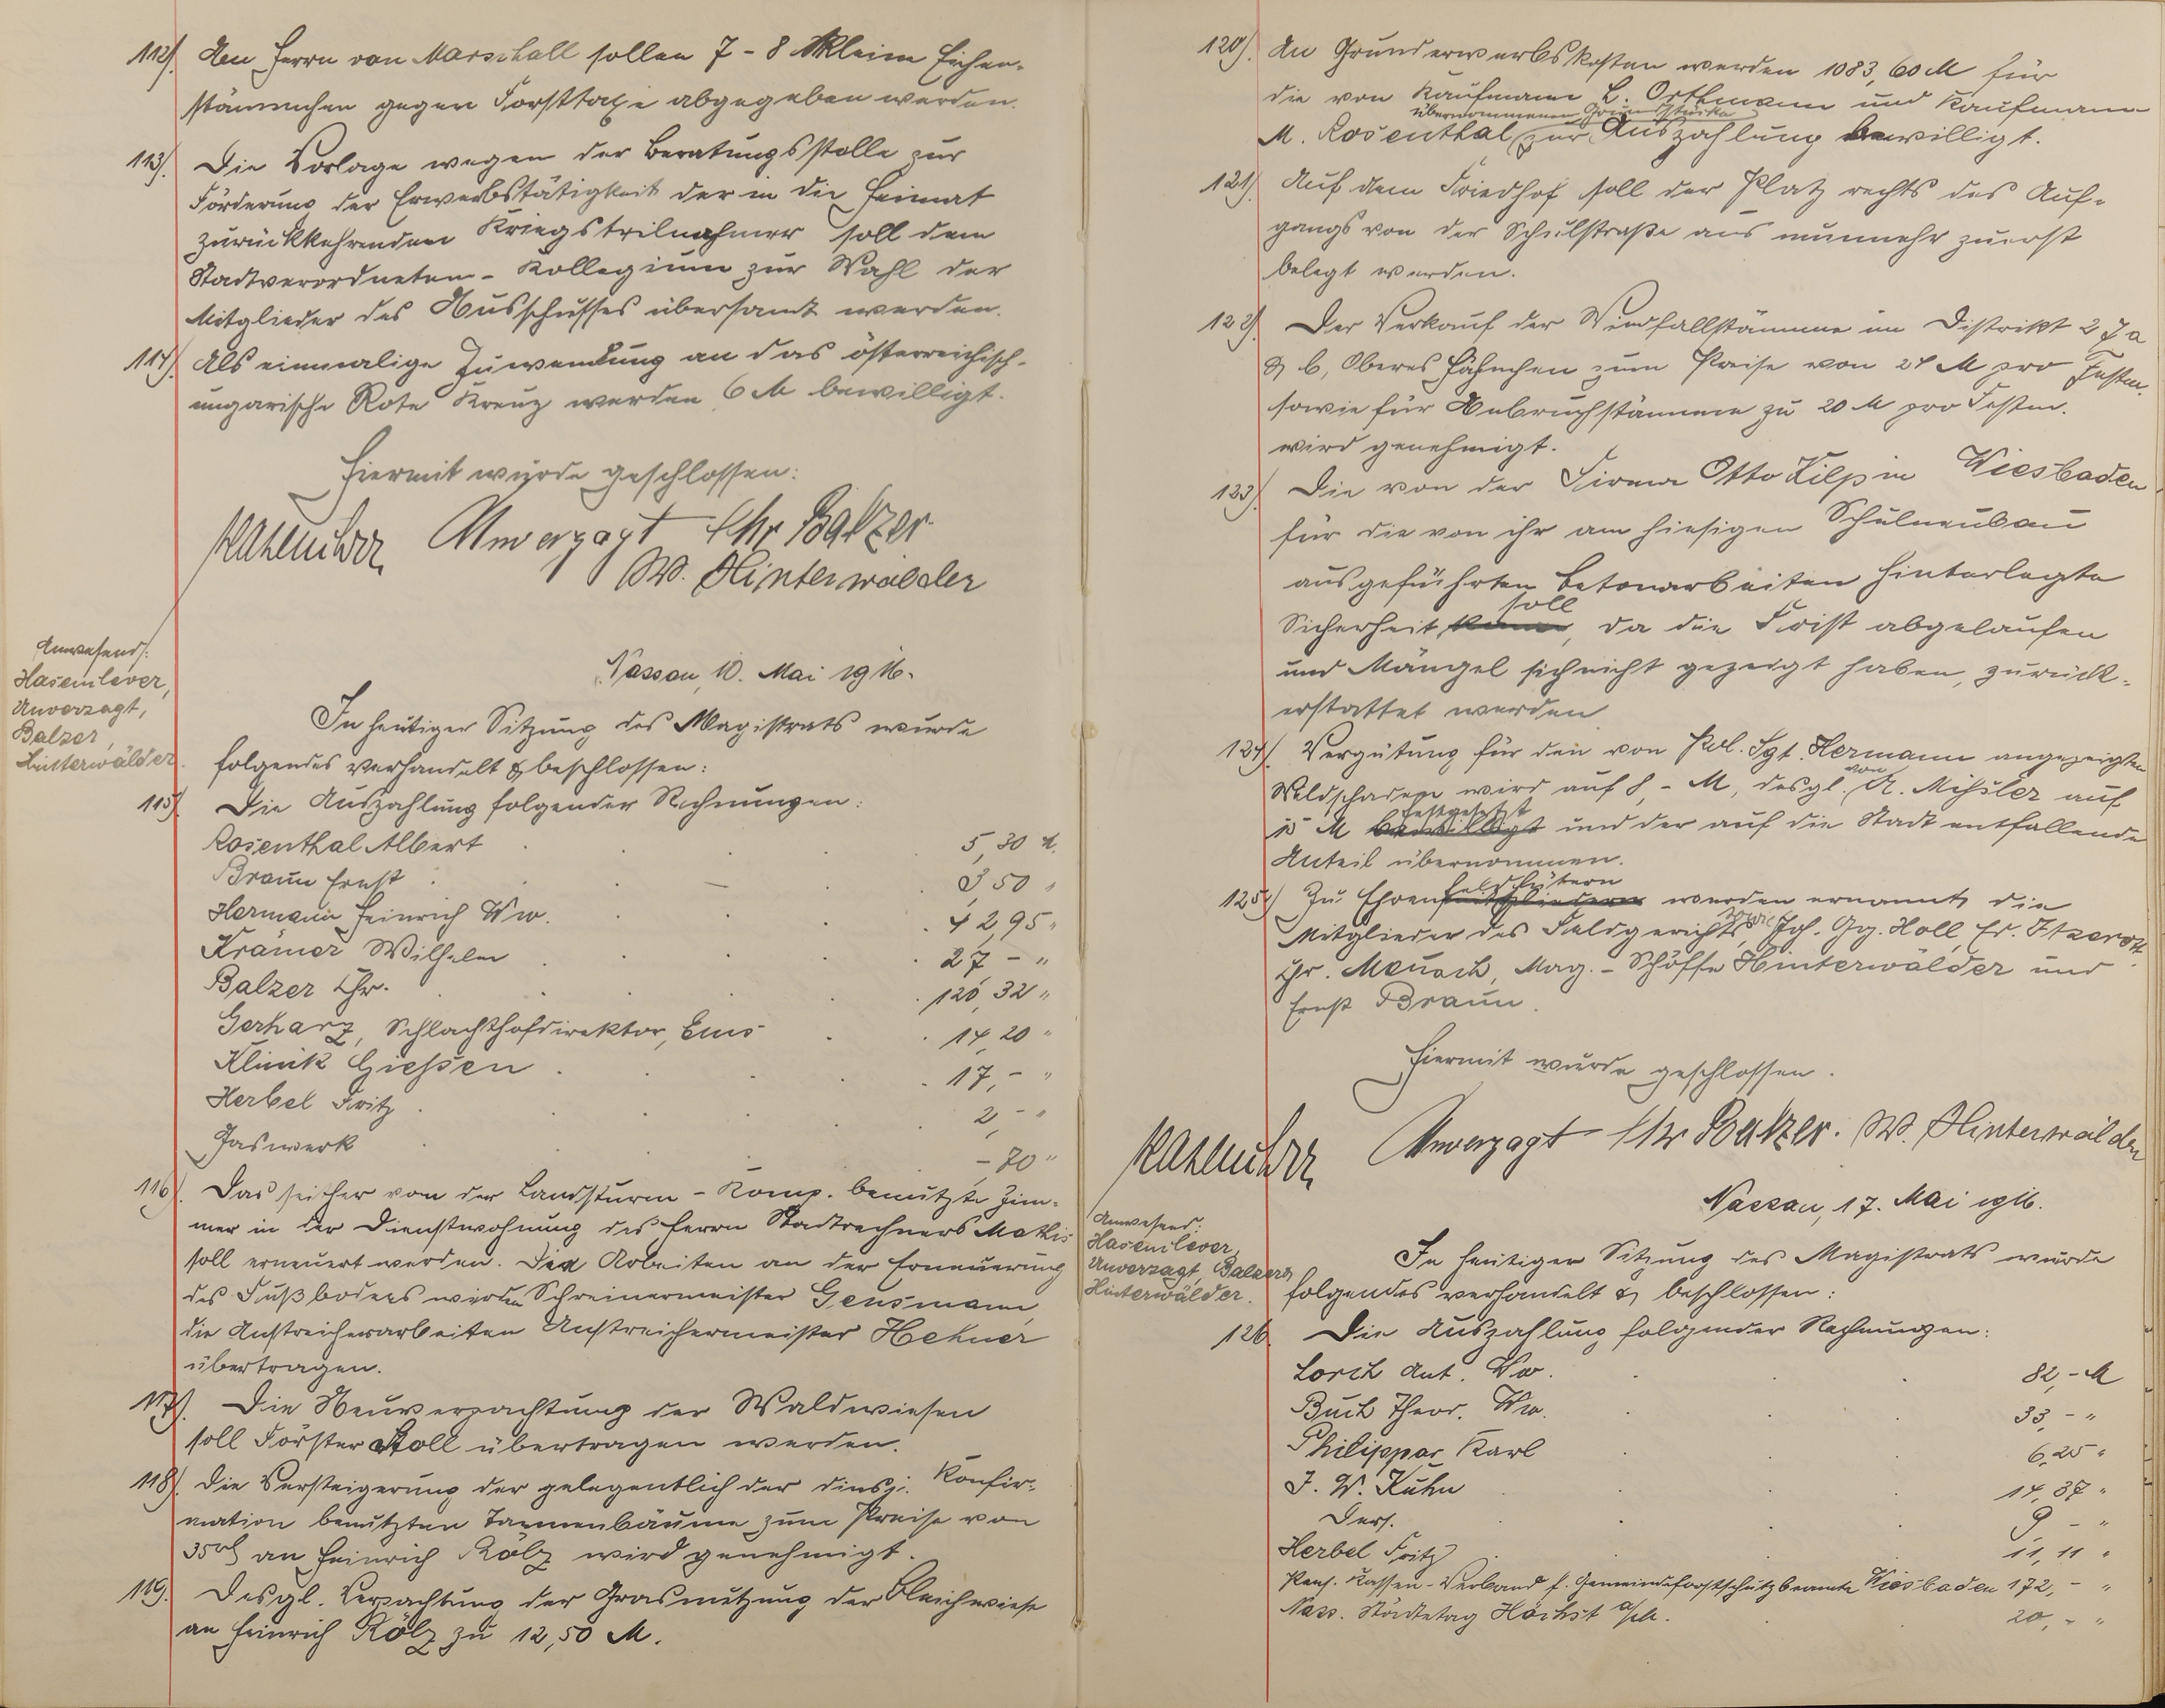 112). Den Herrn von Marschall sollen 7 - 8 kleine Eichen-
stämmchen gegen Forsttaxe abgegeben werden.
113). Die Vorlage wegen der Beratungsstelle zur
Förderung der Erwerbstätigkeit der in die Heimat
zurückkehrenden Kriegsteilnehmer soll dem
Stadtverordneten-Kollegium zur Wahl der
Mitglieder des Ausschusses übersandt werden.
114). Als einmalige Zuwendung an das österreichisch-
ungarische Rote Kreuz werden 6 M bewilligt.
Hiermit wurde geschlossen:
Hasenclever Unverzagt Chr Balzer
W. Hinterwälder
Anwesend:
Hasenclever,
Unverzagt,
Balzer,
Hinterwälder.
Nassau, 10. Mai 1916.
In heutiger Sitzung des Magistrats wurde
folgendes verhandelt & beschlossen:
115). Die Auszahlung folgender Rechnungen:
Rosenthal Albert 5,30 M.
Braun Ernst 3 50 "
Hermann Heinrich Ww. 42,95 "
Krämer Wilhelm 27 - "
Balzer Chr. 120,32 "
Gerharz, Schlachthofdirektor, Ems 14,20 "
Klinik Giessen 17,- "
Herbel Fritz 2,- "
Gaswerk -70 "
116). Das seither von der Landsturm-Komp. benutzte Zim-
mer in der Dienstwohnung des Herrn Stadtrechners
soll erneuert werden. Die Arbeiten an der Erneuerung
des Fußbodens werden Schreinermeister Gensmann,
die Anstreicherarbeiten Anstreichermeister Hehner
übertragen.
117). Die Neuverpachtung der Waldwiesen
soll Förster Stoll übertragen werden.
118). Die Versteigerung der gelegentlich der diesj. Konfir-
mation benutzten Tannenbäume zum Preise von
an Heinrich Rölz wird genehmigt.
119). Desgl. Verpachtung der Grasnutzung der Bleichwiese
an Heinrich Rölz zu 12,50 M.
120). An Grunderwerbskosten werden 1083,60 M für
die von Kaufmann L. Orthmann und Kaufmann
übernommenen Grundstücke
M. Rosenthal zur Auszahlung bewilligt.
121). Auf dem Friedhof soll der Platz rechts des Auf-
gangs von der Schulstraße aus nunmehr zuerst
belegt werden.
122). Der Verkauf der Windfallstämme im Distrikt 27a
& b, Oberes Hähnchen zum Preise von 24 M pro Festm.
sowie für Anbruchstämme zu 20 M pro Festm.
wird genehmigt.
123). Die von der Firma Otto Zilp in Wiesbaden
für die von ihr am hiesigen Schulneubau
ausgeführten Betonarbeiten hinterlegte
soll
Sicherheit kann, da die Frist abgelaufen
und Mängel sich nicht gezeigt haben, zurück-
erstattet werden
124). Vergütung für den von Pol. Sgt. Hermann angezeigten
von
Wildschaden wird auf 8,- M, desgl. A. auf
festgesetzt
15 M bewilligt und der auf die Stadt entfallende
Anteil übernommen.
feldhütern
125). Zu Ehrenmitgliedern werden ernannt die
sowie
Mitglieder des Feldgerichts Joh. Gg. Holl,
Chr. Mag.-Schöffe Hinterwälder und
Ernst Braun.
Hiermit wurde geschlossen.
Hasenclever Unverzagt Chr Balzer. W. Hinterwälder
Nassau, 17. Mai 1916.
Anwesend:
Hasenclever,
Unverzagt, Balzer,
Hinterwälder.
In heutiger Sitzung des Magistrats wurde
folgendes verhandelt & beschlossen:
126. Die Auszahlung folgender Rechnungen:
Lorch Ant. Ww. 82,- M
Buch Theod. Ww. 33,- "
Philippar Karl 6,25 "
J. W. Kuhn 14,37 "
Ders. 9,- "
Herbel Fritz 11,11 "
Pens. Kassen-Verband f. Gemeindeforstschutzbeamte Wiesbaden 172,- "
Nass. Städtetag Höchst a/M. 20,- "